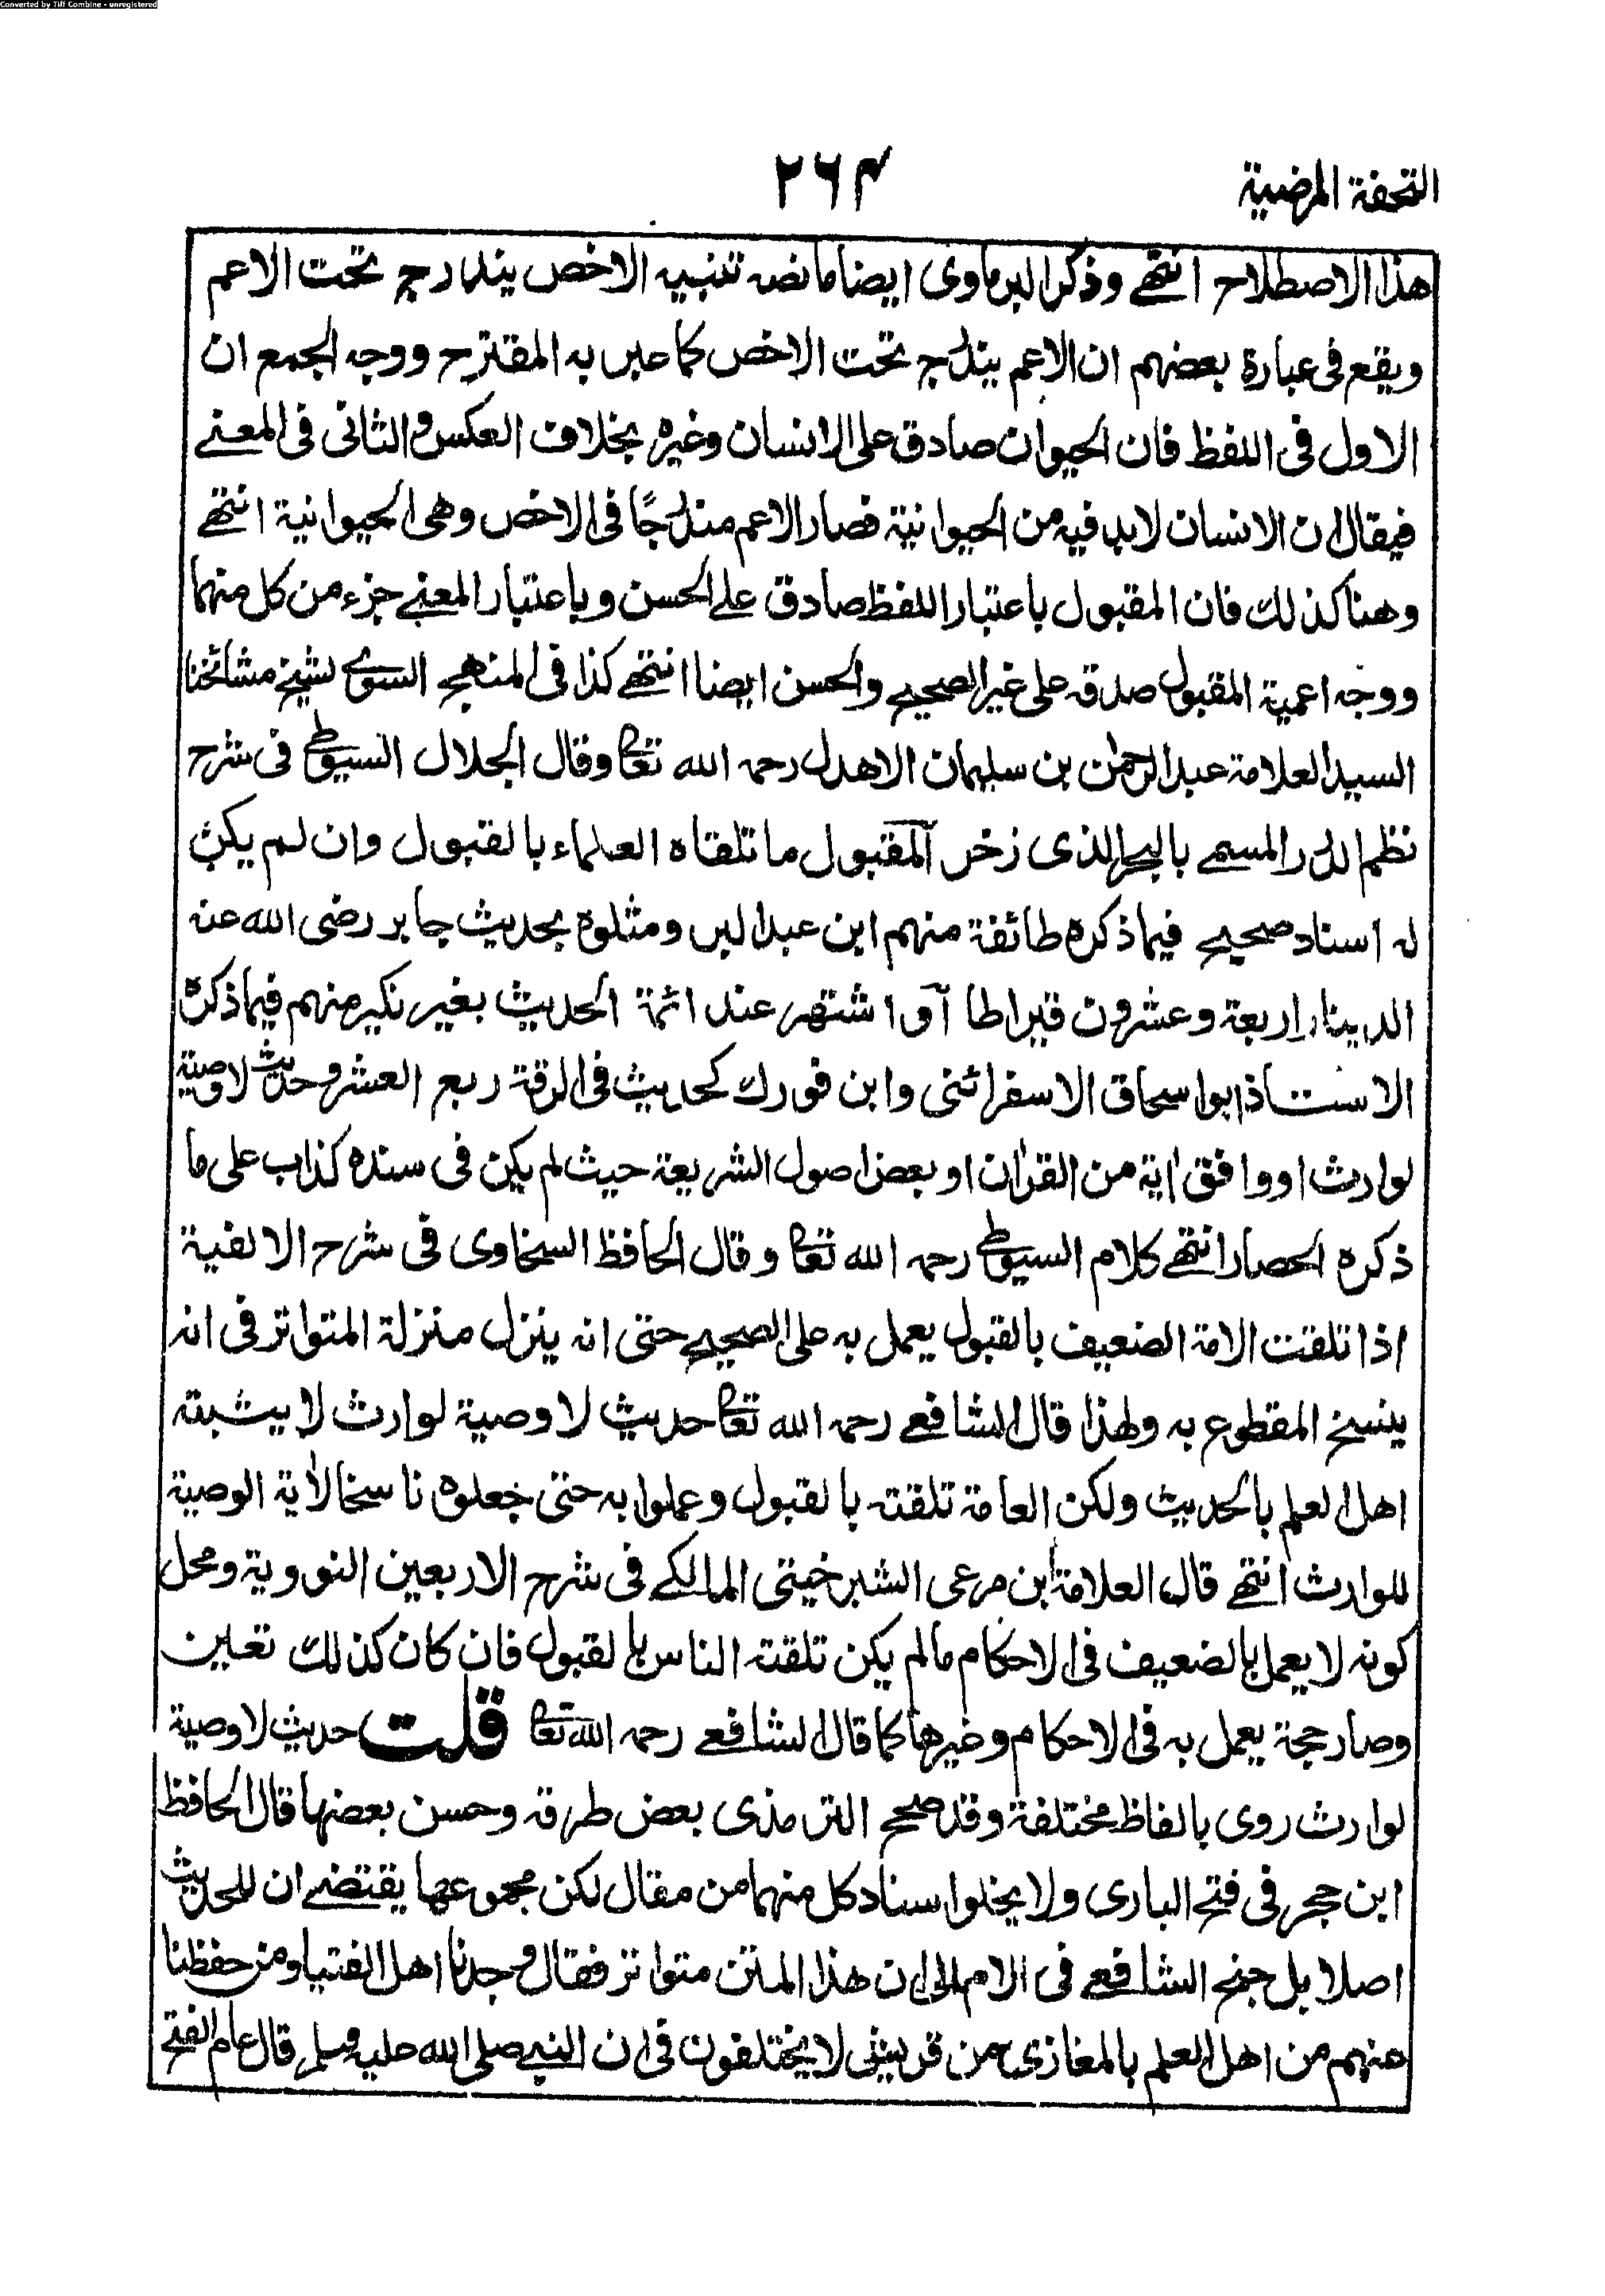 Converted by Tiff Combine - unregistered
التحفة المرضية
٢٦٤
هذا الاصطلاح انتهى وذكر البرماوى ايضا ما نصه تنبيه الاخص يندرج تحت الاعم
ويقع فى عبارة بعضهم ان الاعم يندرج تحت الاخص كما عبر به المقترح ووجه الجمع ان
الاول فى اللفظ فان الحيوان صادق على الانسان وغيره بخلاف العكس والثانى فى المعنے
فيقال ان الانسان لابد فيه من الحيوانية فصار الاعم مندرجًا فى الاخص وهى الحيوانية انتهے
وهنا كذلك فان المقبول باعتبار اللفظ صادق علے الحسن وباعتبار المعنے جزء من كل منهما
ووجه اعمية المقبول صدقه على غير الصحيح والحسن ايضا انتهے كذا فى المنهج السوے لشيخ مشائخنا
السيد العلامة عبد الرحمن بن سليمان الاهدل رحمه الله تعا وقال الجلال السيوطے فى شرح
نظم الدرر المسمے بالبحر الذى زخر المقبول ما تلقاه العلماء بالقبول وان لم يكن
له اسناد صحيح فيما ذكره طائفة منهم ابن عبد البر ومثلوه بحديث جابر رضى الله عنه
الدينار اربعة وعشرون قيراطا او اشتهر عند ائمة الحديث بغير نكير منهم فيما ذكره
الاستاذ ابو اسحاق الاسفرائنى وابن فورك كحديث فى الرقة ربع العشر وحديث لا وصية
لوارث او وافق اٰية من القراٰن او بعض اصول الشريعة حيث لم يكن فى سنده كذاب على ما
ذكره الحصار انتهے كلام السيوطے رحمه الله تعا وقال الحافظ السخاوى فى شرح الالفية
اذا تلقت الامة الضعيف بالقبول يعمل به على الصحيح حتى انه ينزل منزلة المتواتر فى انه
ينسخ المقطوع به ولهذا قال الشافعے رحمه الله تعا حديث لا وصية لوارث لا يثبته
اهل العلم بالحديث ولكن العامة تلقته بالقبول وعملوا به حتى جعلوه ناسخا لاٰية الوصية
للوارث انتهے قال العلامة ابن مرعى الشبرخيتى المالكے فى شرح الاربعين النووية ومحل
كونه لا يعمل بالضعيف فى الاحكام مالم يكن تلقته الناس بالقبول فان كان كذلك تعين
وصار حجة يعمل به فى الاحكام وغيرها كما قال الشافعے رحمه الله تعا قلت حديث لا وصية
لوارث روى بالفاظ مختلفة وقد صحح الترمذى بعض طرقه وحسن بعضها قال الحافظ
ابن حجر فى فتح البارى ولا يخلوا سناد كل منهما من مقال لكن مجموعها يقتضے ان للحديث
اصلا بل جنح الشافعے فى الام الى ان هذا المتن متواتر فقال وجدنا اهل الفتيا ومن حفظنا
عنهم من اهل العلم بالمغازى من قريش لا يختلفون فى ان النبے صلى الله عليه وسلم قال عام الفتح